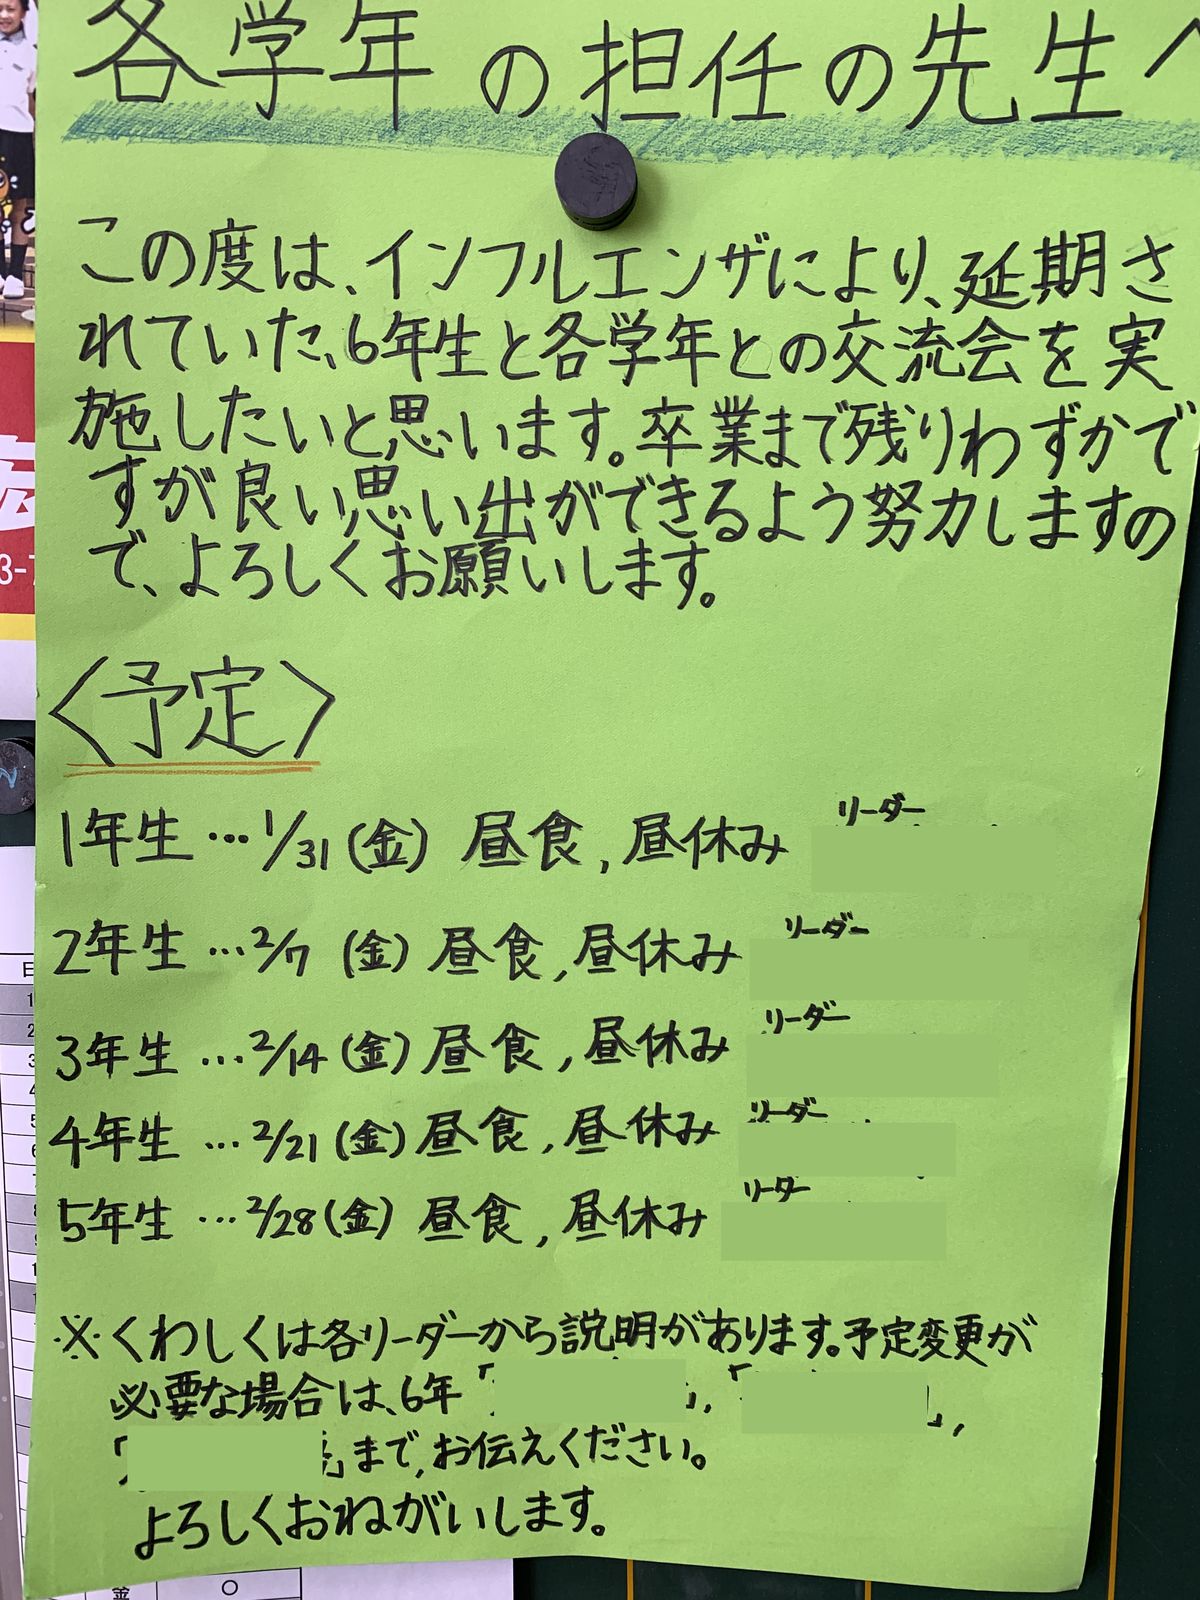 各学年の担任の先生へ
この度は、インフルエンザにより、延期さ
れていた、6年生と各学年との交流会を実
施したいと思います。卒業まで残りわずかで
すが良い思い出ができるよう努力しますの
で、よろしくお願いします。
〈予定〉
1年生…1/31(金) 昼食,昼休み リーダー
2年生…2/7(金) 昼食,昼休み リーダー
3年生…2/14(金) 昼食,昼休み リーダー
4年生…2/21(金) 昼食,昼休み リーダー
5年生…2/28(金) 昼食,昼休み リーダー
※くわしくは各リーダーから説明があります。予定変更が
必要な場合は、6年「 」,「 」,
「 」まで,お伝えください。
よろしくおねがいします。
金 ○